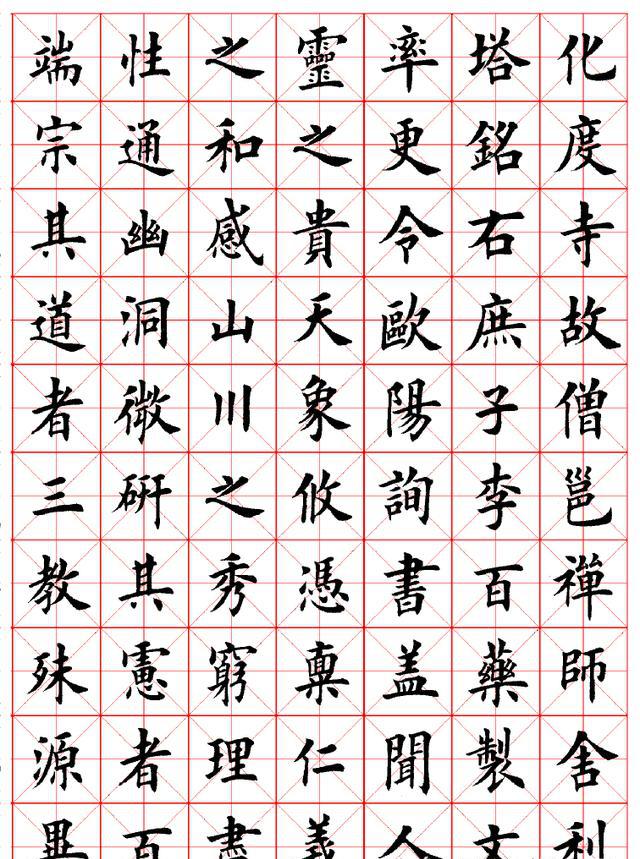 化度寺故僧邕禪師舍利
塔銘右庶子李百藥製文
率更令歐陽詢書盖聞人
靈之貴天象攸憑稟仁義
之和感山川之秀窮理盡
性通幽洞微硏其慮者百
端宗其道者三教殊源異